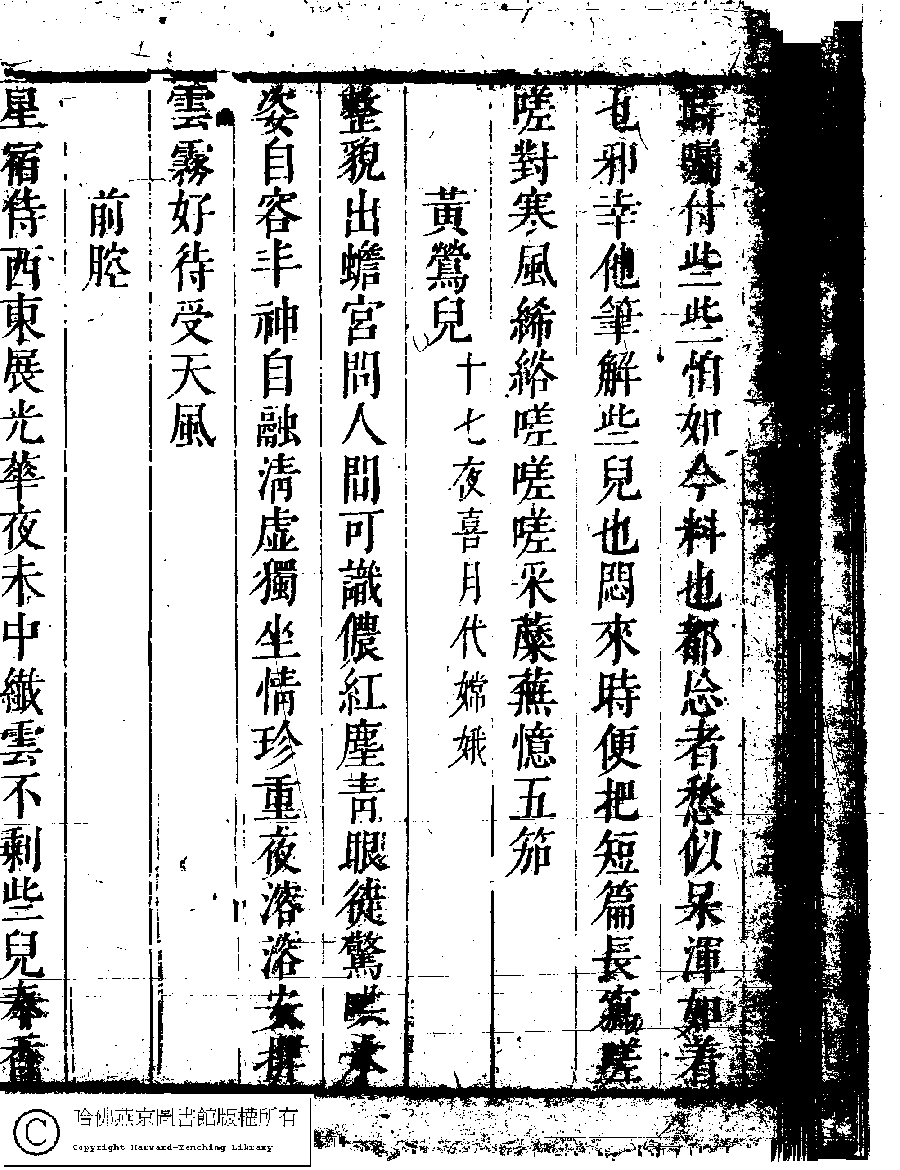 囑付些些怕如今料也都忩者愁似呆渾如着
也邪幸他筆解些兒也悶來時便把短篇長寫嗟
嗟對寒風絺綌嗟嗟嗟采蘪蕪憶五笳
黃鶯兒十七夜喜月代嫦娥
整貌出蟾宮問人間可識儂紅塵青眼徒驚
姿自容丰神自融清虛獨坐情珍重夜溶溶安排
雲霧好待受天風
前腔
星宿待西東展光華夜未中纖雲不剩些兒奉香
哈佛燕京圖書館版權所有
Copyright Harvard-Yenching Library